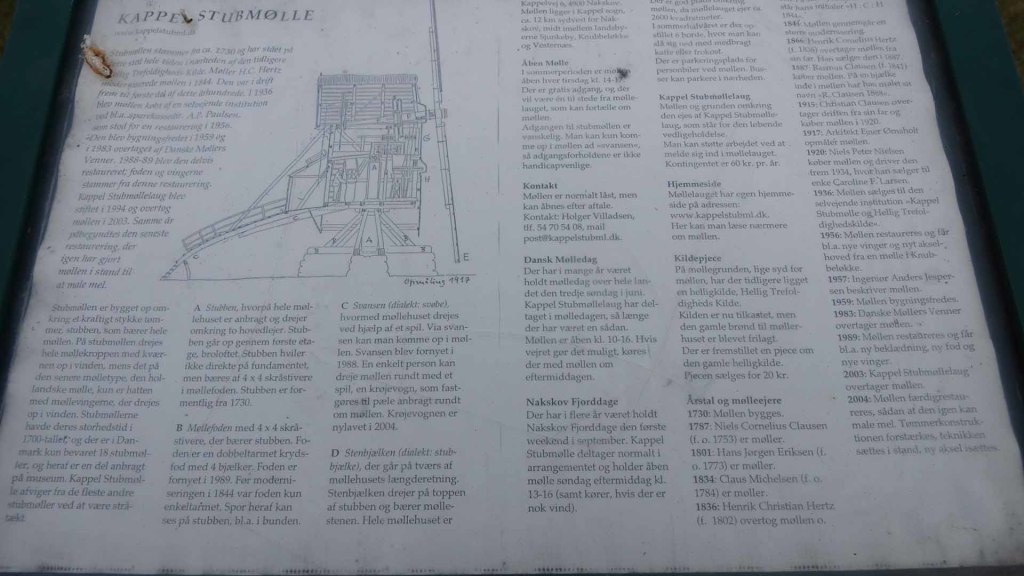 KAPPEL STUBMØLLE
www.kappelstubml.dk
Stubmøllen stammer fra ca. 1730 og har stået på
sted helt siden i nærheden af den tidligere
Trefoldigheds Kilde. Møller H.C. Hertz
moderniserede møllen i 1844. Den var i drift
frem til første del af dette århundrede. I 1936
blev møllen købt af en selvejende institution
ved bl.a. sparekassedir. A.P. Paulsen,
som stod for en restaurering i 1956.
Den blev bygningsfredet i 1959 og
i 1983 overtaget af Danske Møllers
Venner. 1988-89 blev den delvis
restaureret; foden og vingerne
stammer fra denne restaurering.
Kappel Stubmøllelaug blev
stiftet i 1994 og overtog
møllen i 2003. Samme år
påbegyndtes den seneste
restaurering, der
igen har gjort
møllen i stand til
at male mel.
A
E
G
H
Opmåling 1917
Stubmøllen er bygget op om-
kring et kraftigt stykke tøm-
mer, stubben, som bærer hele
møllen. På stubmøllen drejes
hele møllekroppen med kvær-
nen op i vinden, mens det på
den senere mølletype, den hol-
landske mølle, kun er hatten
med møllevingerne, der drejes
op i vinden. Stubmøllerne
havde deres storhedstid i
1700-tallet, og der er i Dan-
mark kun bevaret 18 stubmøl-
ler, og heraf er en del anbragt
på museum. Kappel Stubmøl-
le afviger fra de fleste andre
stubmøller ved at være strå-
tækt.
A Stubben, hvorpå hele møl-
lehuset er anbragt og drejer
omkring to hovedlejer. Stub-
ben går op gennem første eta-
ge, broloftet. Stubben hviler
ikke direkte på fundamentet,
men bæres af 4 x 4 skråstivere
i møllefoden. Stubben er for-
mentlig fra 1730.
B Møllefoden med 4 x 4 skrå-
stivere, der bærer stubben. Fo-
den er en dobbeltarmet kryds-
fod med 4 bjælker. Foden er
fornyet i 1989. Før moderni-
seringen i 1844 var foden kun
enkeltarmet. Spor heraf kan
ses på stubben, bl.a. i bunden.
C Svansen (dialekt: svøbe),
hvormed møllehuset drejes
ved hjælp af et spil. Via svan-
sen kan man komme op i møl-
len. Svansen blev fornyet i
1988. En enkelt person kan
dreje møllen rundt med et
spil, en krøjevogn, som fast-
gøres til pæle anbragt rundt
om møllen. Krøjevognen er
nylavet i 2004.
D Stenbjælken (dialekt: stub-
bjælke), der går på tværs af
møllehusets længderetning.
Stenbjælken drejer på toppen
af stubben og bærer mølle-
stenen. Hele møllehuset er
Kappelvej 6, 4900 Nakskov.
Møllen ligger i Kappel sogn,
ca. 12 km sydvest for Nak-
skov, midt imellem landsby-
erne Gjøkeby, Knubbeløkke
og Vesternæs.
Åben Mølle
I sommerperioden er møllen
åben hver tirsdag kl. 14-1
Der er gratis adgang, og der
vil være én til stede fra mølle-
lauget, som kan fortælle om
møllen.
Adgangen til stubmøllen er
vanskelig. Man kan kun kom-
me op i møllen ad »svansen«,
så adgangsforholdene er ikke
handicapvenlige.
Kontakt
Møllen er normalt låst, men
kan åbnes efter aftale.
Kontakt: Holger Villadsen,
tlf. 54 70 54 08, mail
post@kappelstubml.dk.
Dansk Mølledag
Der har i mange år været
holdt mølledag over hele lan-
det den tredje søndag i juni.
Kappel Stubmøllelaug har del-
taget i mølledagen, så længe
der har været en sådan.
Møllen er åben kl. 10-16. Hvis
vejret gør det muligt, køres
der med møllen om
eftermiddagen.
Nakskov Fjorddage
Der har i flere år været holdt
Nakskov Fjorddage den første
weekend i september. Kappel
Stubmølle deltager normalt i
arrangementet og holder åben
mølle søndag eftermiddag kl.
13-16 (samt kører, hvis der er
nok vind).
møllen, da møllelauget ejer ca.
2600 kvadratmeter.
I sommerhalvåret er der op-
stillet 6 borde, hvor man kan
slå sig ned med medbragt
kaffe eller frokost.
Der er parkeringsplads for
personbiler ved møllen. Bus-
ser kan parkere i nærheden.
Kappel Stubmøllelaug
Møllen og grunden omkring
den ejes af Kappel Stubmølle-
laug, som står for den løbende
vedligeholdelse.
Man kan støtte arbejdet ved at
melde sig ind i møllelauget.
Kontingentet er 60 kr. pr. år.
Hjemmeside
Møllelauget har egen hjemme-
side på adressen:
www.kappelstubml.dk.
Her kan man læse nærmere
om møllen.
Kildepjece
På møllegrunden, lige syd for
møllen, har der tidligere ligget
en helligkilde, Hellig Trefol-
digheds Kilde.
Kilden er nu tilkastet, men
den gamle brønd til møller-
huset er blevet frilagt.
Der er fremstillet en pjece om
den gamle helligkilde.
Pjecen sælges for 20 kr.
Årstal og mølleejere
1730: Møllen bygges.
1787: Niels Cornelius Clausen
(f. o. 1753) er møller.
1801: Hans Jørgen Eriksen (f.
o. 1773) er møller.
1834: Claus Michelsen (f. o.
1784) er møller.
1836: Henrik Christian Hertz
(f. 1802) overtog møllen o.
1844.
1844: Møllen gennemgår en
større modernisering.
1866: Henrik Cornelius Hertz
(f. 1836) overtager møllen fra
sin far. Han sælger den i 1887.
1887: Rasmus Clausen (f. 1841)
køber møllen. På en bjælke
inde i møllen har han malet sit
navn »R. Clausen 1888«.
1915: Christian Clausen over-
tager driften fra sin far og
køber møllen i 1920.
1917: Arkitekt Ejner Ømsholt
opmåler møllen.
1920: Niels Peter Nielsen
køber møllen og driver den
frem 1934, hvor han sælger til
enke Caroline F. Larsen.
1936: Møllen sælges til den
selvejende institution »Kappel
Stubmølle og Hellig Trefol-
dighedskilde«.
1956: Møllen restaureres og får
bl.a. nye vinger og nyt aksel-
hoved fra en mølle i Knub-
beløkke.
1957: Ingeniør Anders Jesper-
sen beskriver møllen.
1959: Møllen bygningsfredes.
1983: Danske Møllers Venner
overtager møllen.
1989: Møllen restaureres og får
bl.a. ny beklædning, ny fod og
nye vinger.
2003: Kappel Stubmøllelaug
overtager møllen.
2004: Møllen færdigrestau-
reres, sådan at den igen kan
male mel. Tømmerkonstruk-
tionen forstærkes, teknikken
sættes i stand, ny aksel isættes.